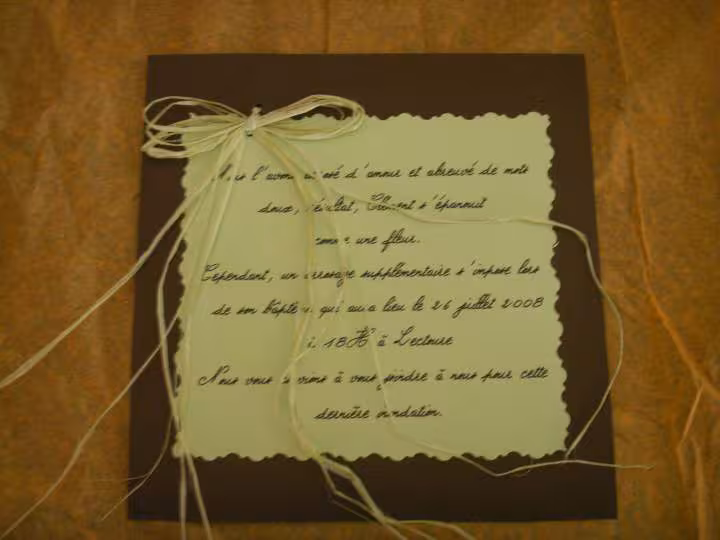 Nous l'avons arrosé d'amour et abreuvé de mots
doux, résultat, Clément s'épanouit
comme une fleur.
Cependant, un arrosage supplémentaire s'impose lors
de son baptême qui aura lieu le 26 juillet 2008
à 18H à Lectoure
Nous vous invitons à vous joindre à nous pour cette
dernière inondation.